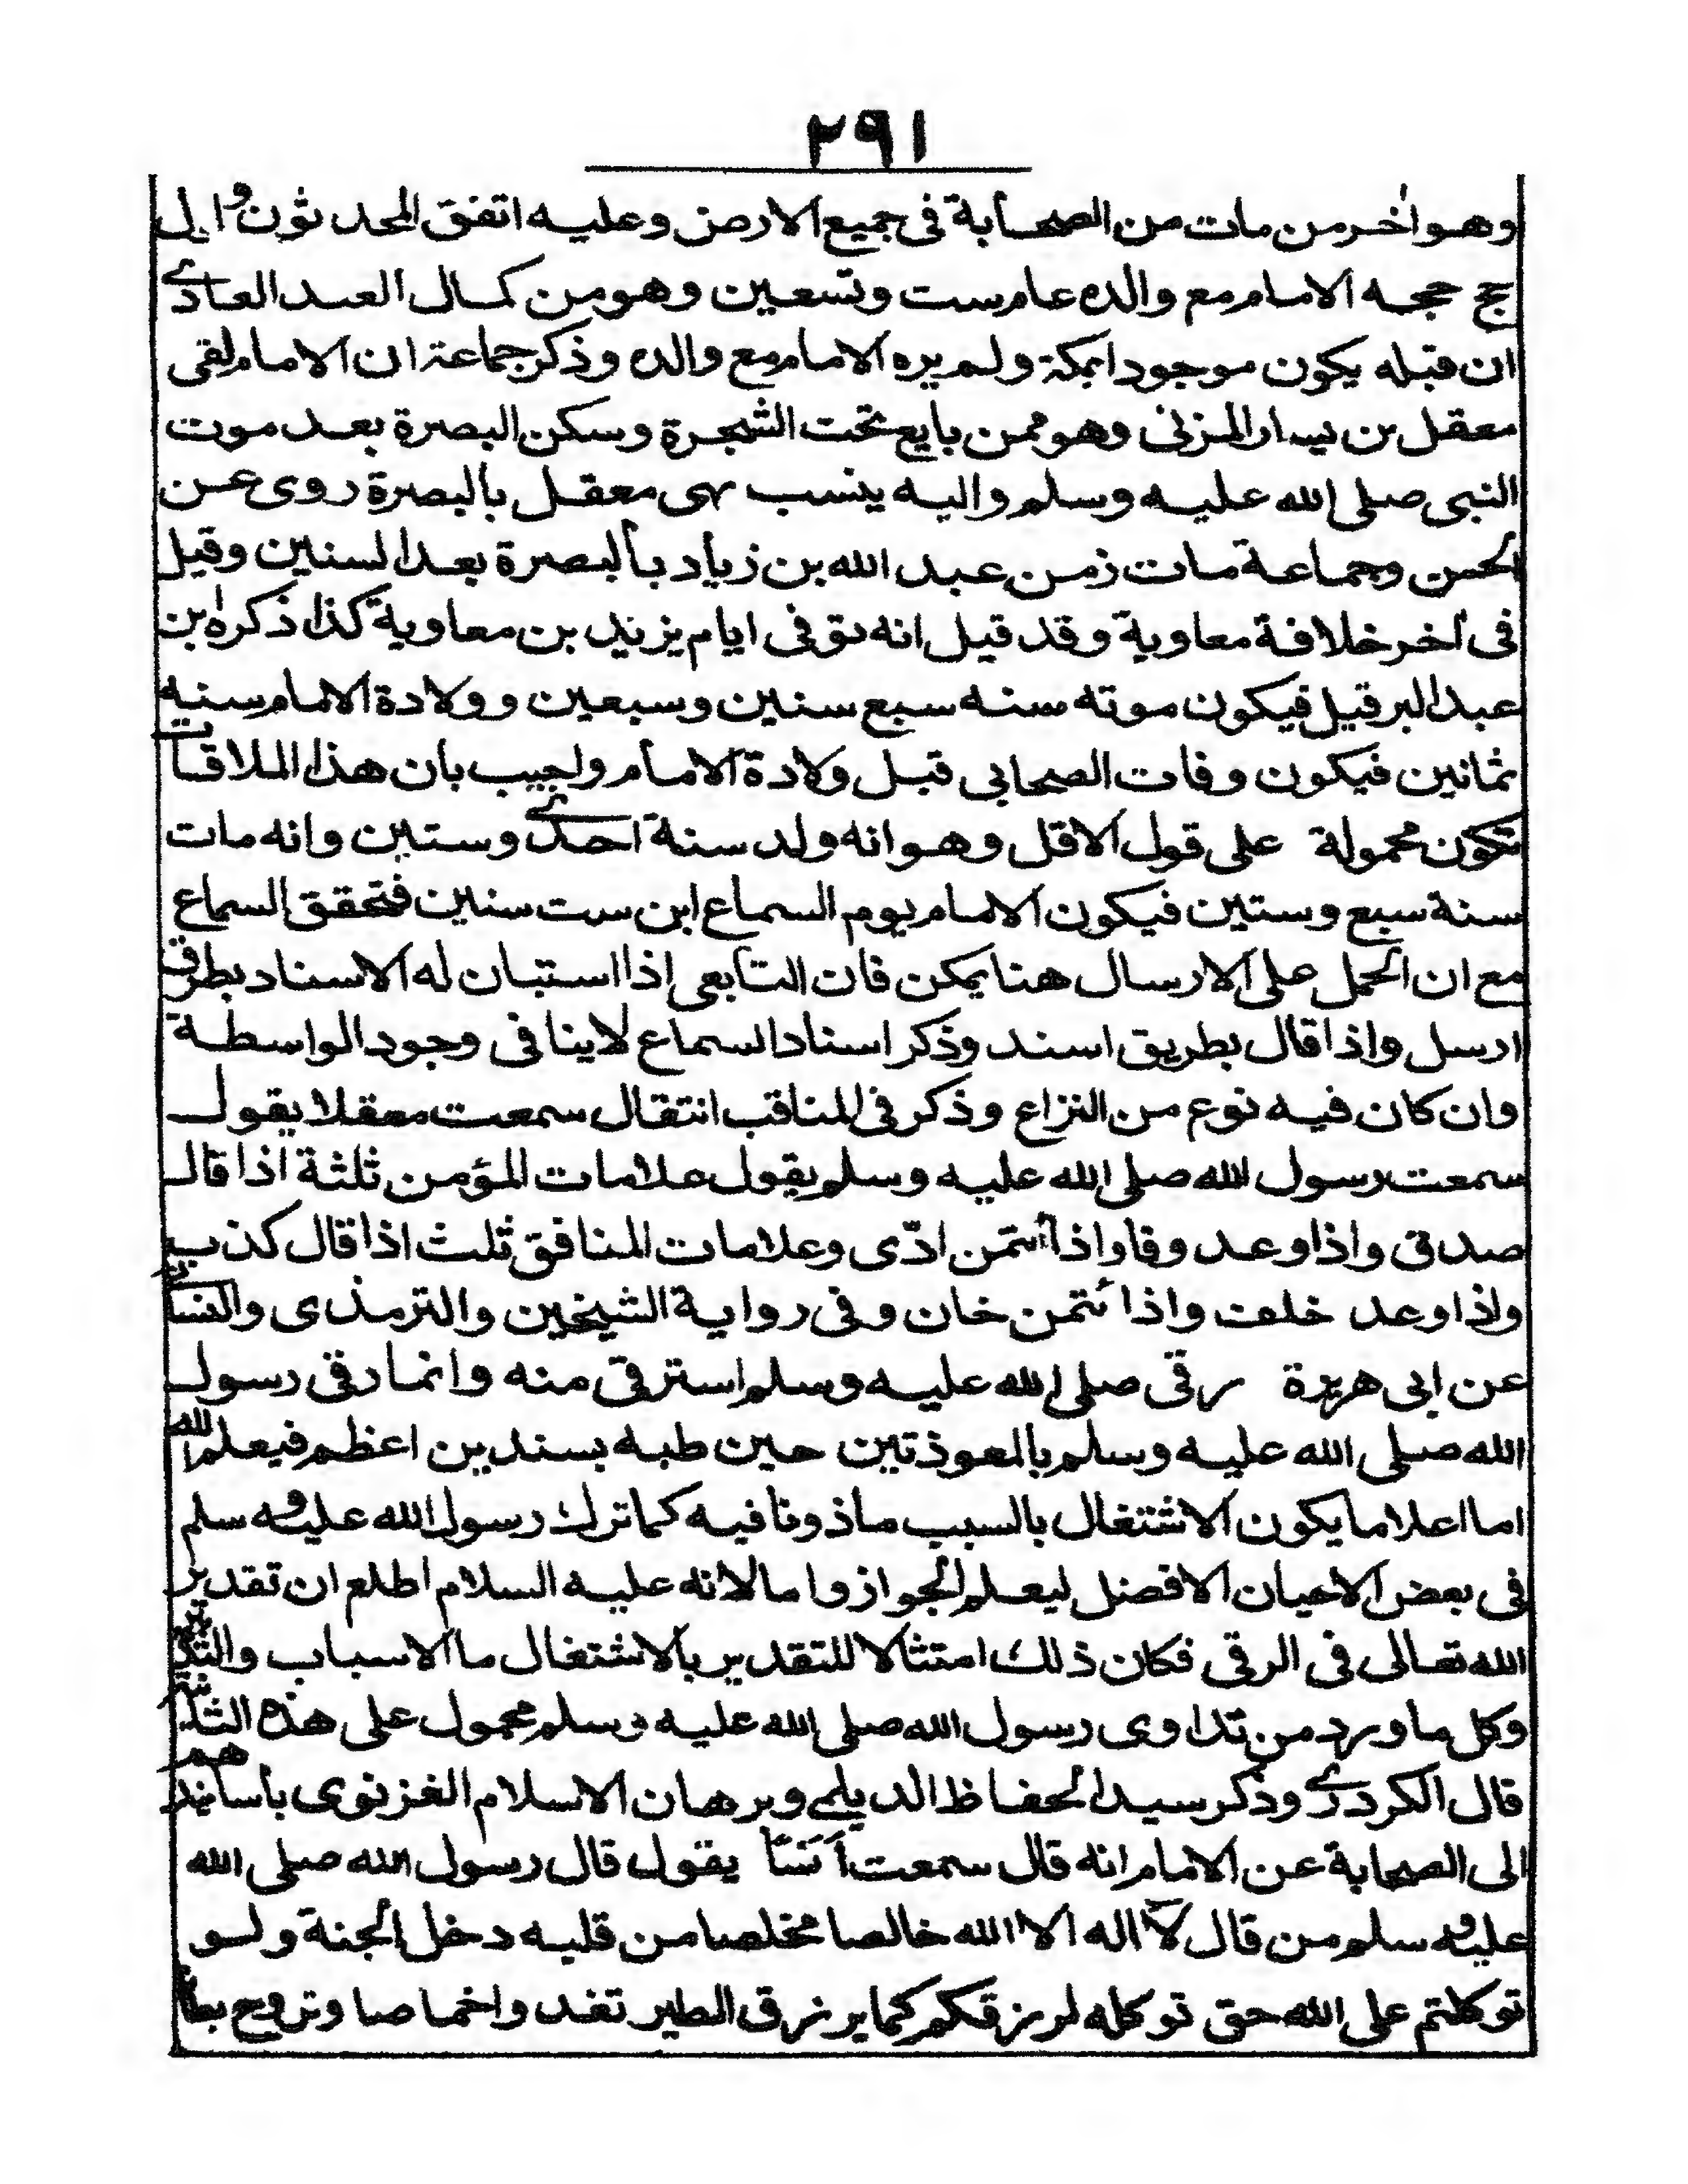 ٢٩١
وهو اٰخر من مات من الصحابة فى جميع الارض وعليه اتفق المحدثون و اول
حج حجه الامام مع والده عام ست وتسعين وهو من كمال العبد العادى
ان قبله يكون موجودا بمكة ولم يره الامام مع والده وذكر جماعة ان الامام لقى
معقل بن يسار المزنى وهو ممن بايع تحت الشجرة وسكن البصرة بعد موت
النبى صلى الله عليه وسلم واليه ينسب نهى معقل بالبصرة روى عن
الحسن وجماعة مات زمن عبد الله بن زياد بالبصرة بعد السنين وقيل
فى اٰخر خلافة معاوية وقد قيل انه توفى ايام يزيد بن معاوية كذا ذكره ابن
عبد البر قيل فيكون موته سنه سبع سنين وسبعين وولادة الامام سنه
ثمانين فيكون وفات الصحابى قبل ولادة الامام واجيب بان هذا الملاقات
تكون محمولة على قول الاقل وهو انه ولد سنة احدى وستين وانه مات
سنة سبع وستين فيكون الامام يوم السماع ابن ست سنين فتحقق السماع
مع ان الحمل على الارسال هنا يمكن فان التابعى اذا استبان له الاسناد بطرق
ارسل واذا قال بطريق اسند وذكر اسناد السماع لاينافى وجود الواسطة
وان كان فيه نوع من النزاع وذكر فى المناقب انتقال سمعت معقلا يقول
سمعت رسول الله صلى الله عليه وسلم يقول علامات المؤمن ثلثة اذا قال
صدق واذا وعد وفا واذا أئتمن ادّى وعلامات المنافق ثلث اذا قال كذب
واذا وعد خلف واذا ئتمن خان وفى رواية الشيخين والترمذى والنسائى
عن ابى هريرة رقى صلى الله عليه وسلم استرقى منه وانما رقى رسول
الله صلى الله عليه وسلم بالمعوذتين حين طبه بسندين اعظم فيعلم الله
اما اعلاما يكون الاشتغال بالسبب ماذونا فيه كما ترك رسول الله عليه و سلم
فى بعض الاحيان الافضل ليعلم الجواز واما لانه عليه السلام اطلع ان تقدير
الله تعالى فى الرقى فكان ذلك امتثالا للتقدير بالاشتغال ما الاسباب
وكل ما ورد من تداوى رسول الله صلى الله عليه وسلم محمول على هذه
قال الكردرى وذكر سيد الحفاظ الديلمى وبرهان الاسلام الغزنوى باسانيدهم
الى الصحابة عن الامام انه قال سمعت أنَسًا يقول قال رسول الله صلى الله
عليه و سلم من قال لآ اله الا الله خالصا مخلصا من قلبه دخل الجنة ولو
توكلتم على الله حق توكله لرزقكم كما يرزق الطير تغدوا خماصا وتروح بطانا